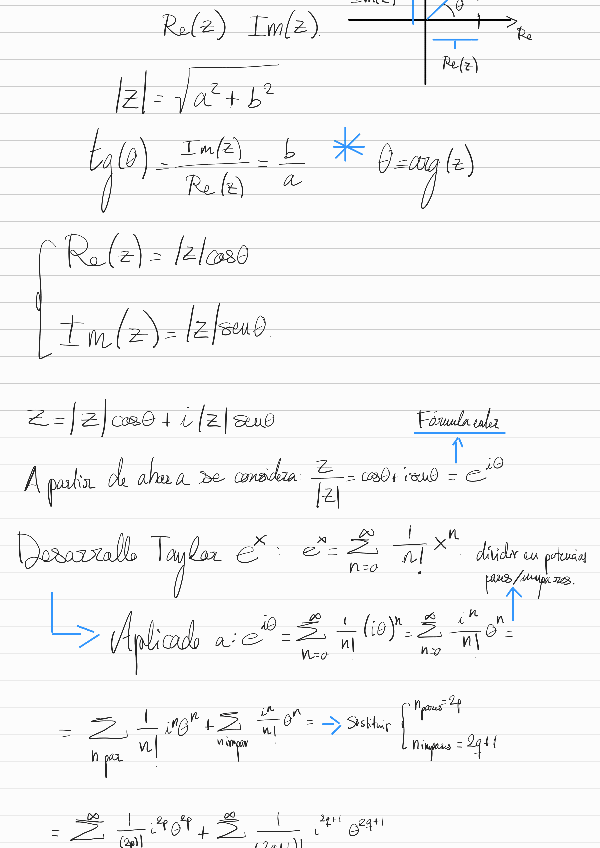 Re(z) Im(z).
θ
Re
Re(z)
|z| = √(a² + b²)
tg(θ) = Im(z)/Re(z) = b/a * θ = arg(z)
Re(z) = |z| cosθ
Im(z) = |z| senθ.
z = |z| cosθ + i |z| senθ
Fórmula euler
A partir de ahora se considera: z/|z| = cosθ + i senθ = e^{iθ}
Desarrollo Taylor e^x: e^x = ∑_{n=0}^{∞} 1/n! x^n.
dividir en potencias
pares/impares.
Aplicado a: e^{iθ} = ∑_{n=0}^{∞} 1/n! (iθ)^n = ∑_{n=0}^{∞} i^n/n! θ^n =
= ∑_{n par} 1/n! i^n θ^n + ∑_{n impar} i^n/n! θ^n = → Sustituir { n pares = 2p
n impares = 2q+1
= ∑^{∞} 1/(2p)! i^{2p} θ^{2p} + ∑^{∞} 1/(2q+1)! i^{2q+1} θ^{2q+1}